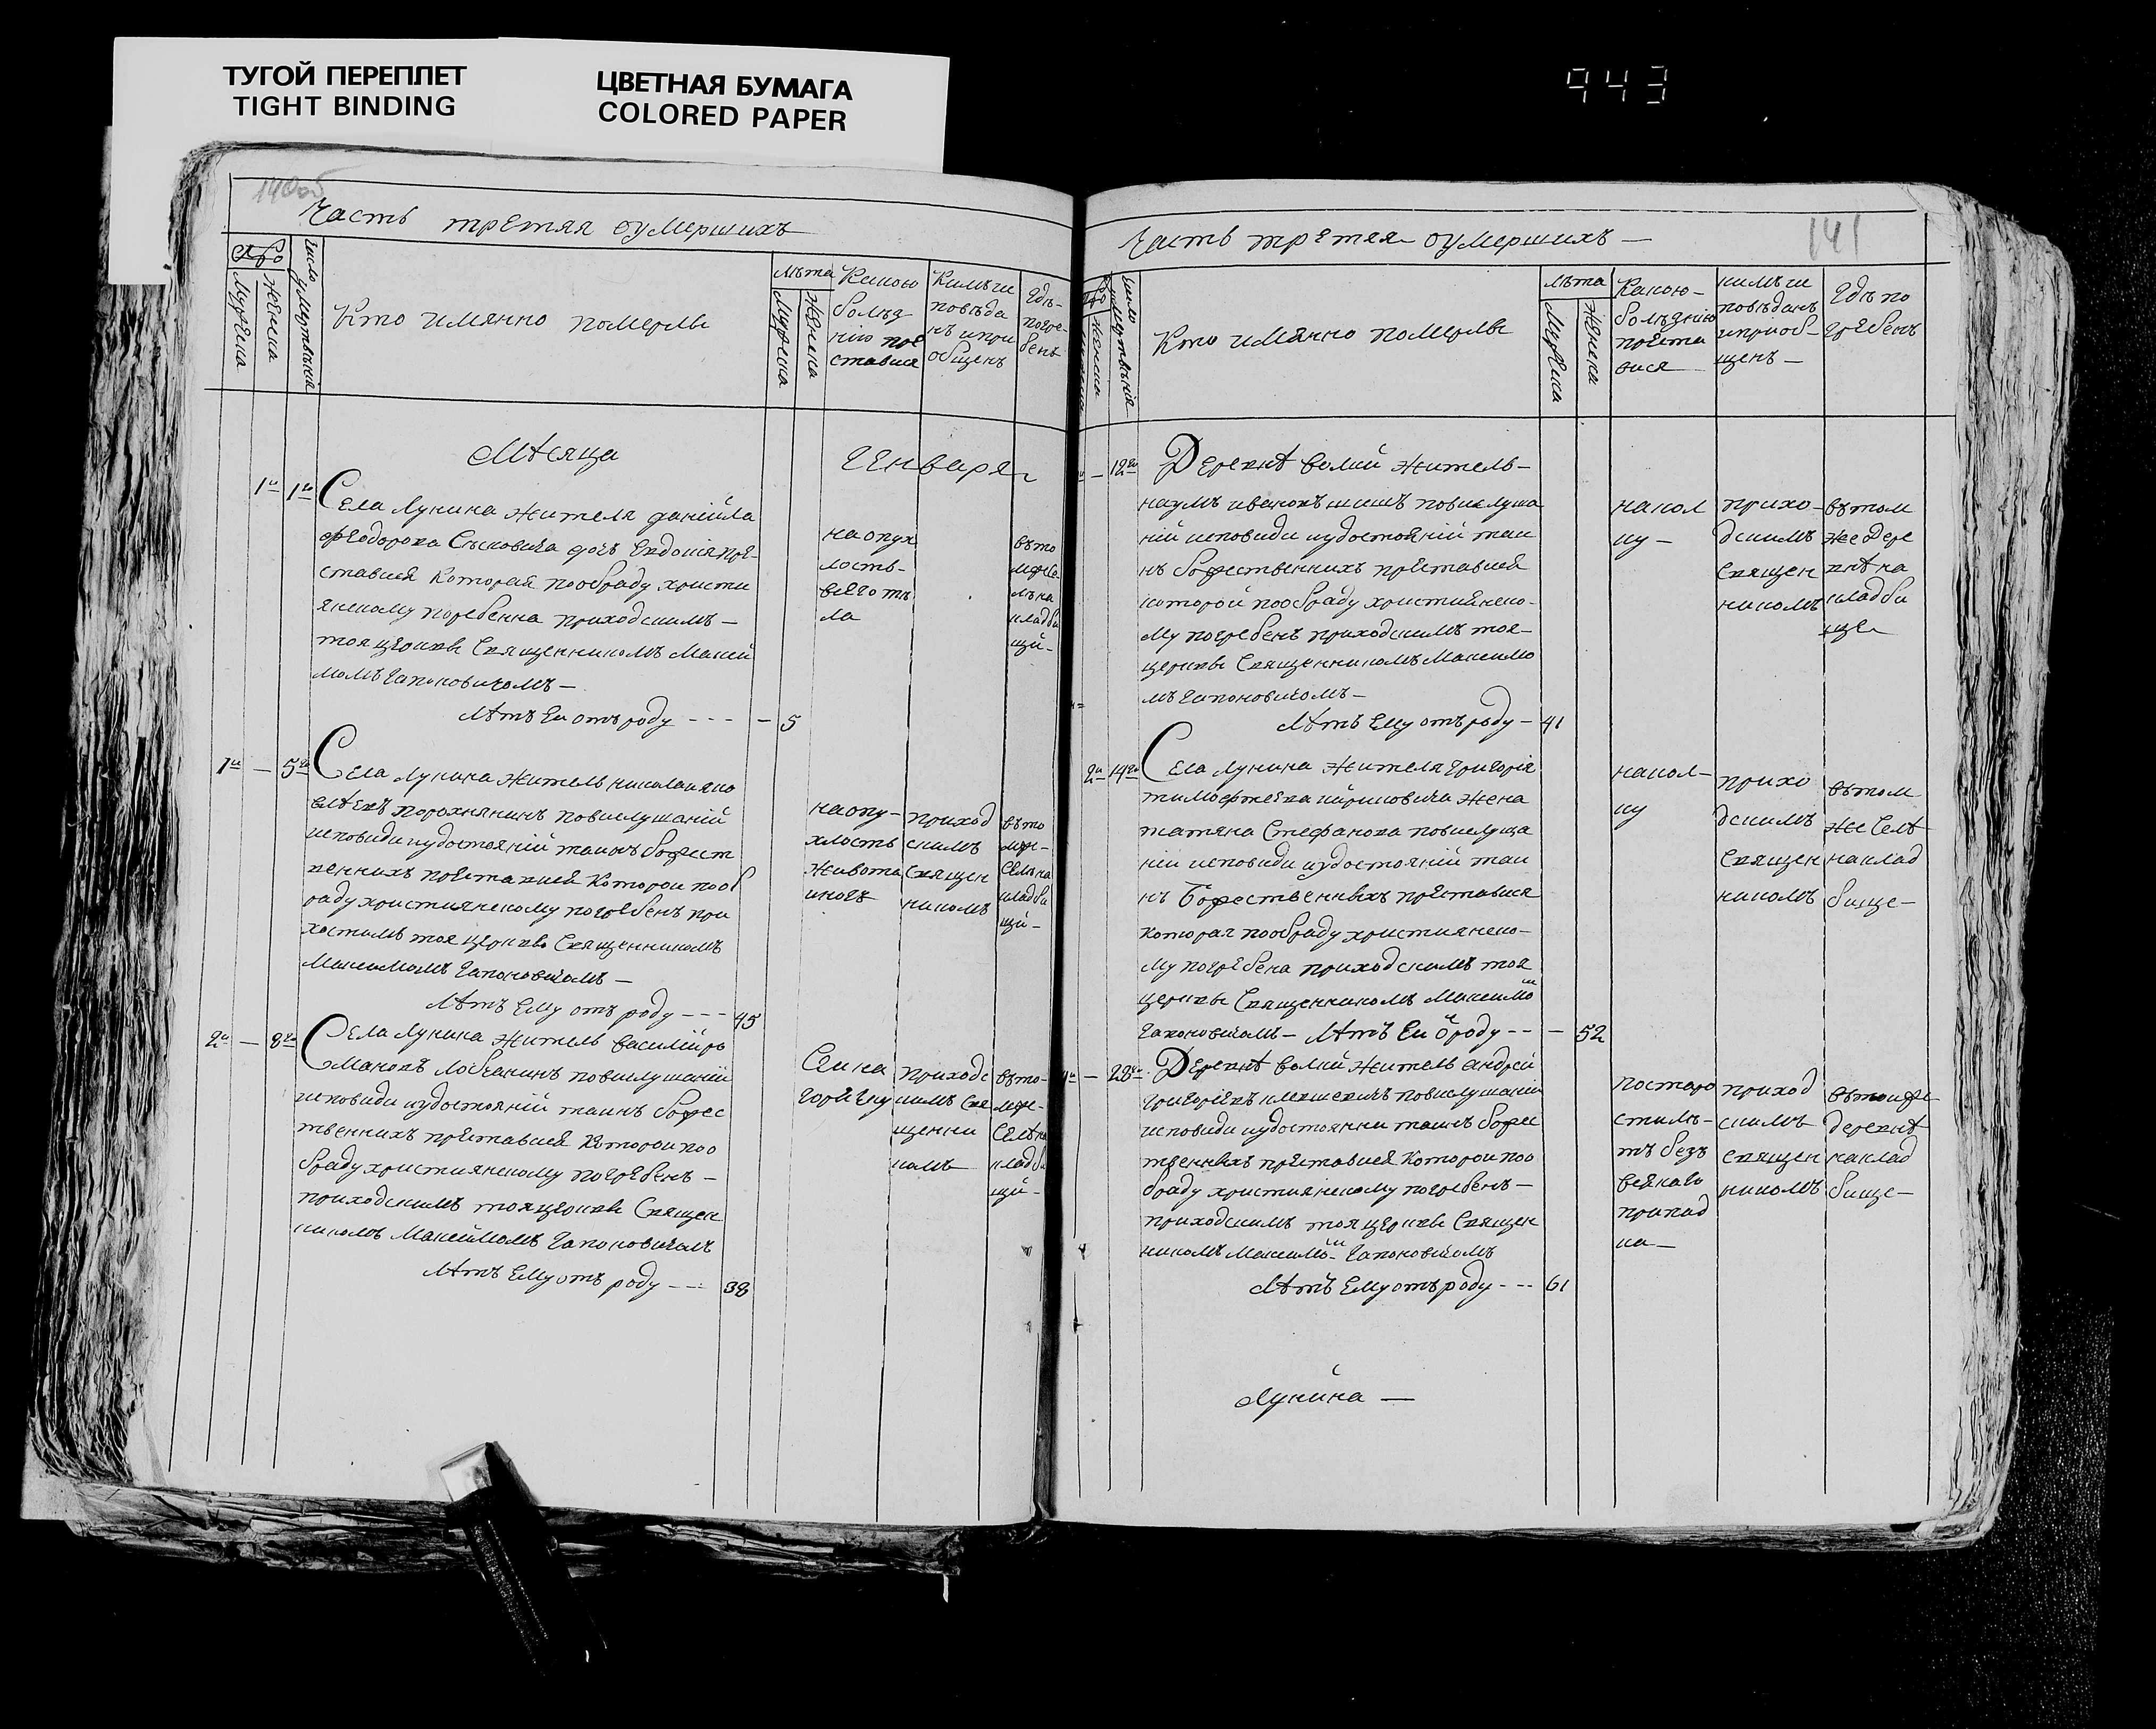 ТУГОЙ ПЕРЕПЛЕТ
TIGHT BINDING
ЦВЕТНАЯ БУМАГА
COLORED PAPER
943
140об
Часть третяя оумершихъ
Число умертвыя
Мужеска
Женска
Кто имянно померлъ
Лѣта
Мужеска
Женска
Какою
болѣз
нію пре
ставися
Кимъ и
повѣда
нъ и при
общенъ
Гдѣ
погре
бенъ
Мѣсяца Генваря
1й 1го Села Лунина жителя даніила
феодорова Сысковича дочь Евдокія пре
ставися которая пообраду христи
янскому погребенна приходскимъ —
тоя церкви Священникомъ Макси
момъ Гапоновичомъ —
Лѣтъ Ей отъ роду - - - — 5
на опух
лость
всего тѣ
ла
въ то
мже се
лѣ на
кладби
щи —
1й — 5го Села Лунина житель николай яко
влевъ порохнянинъ повислушаній
исповиди иудостояній таинъ божест
венныхъ преставися которой пооб
раду християнскому погребенъ при
хоскимъ тоя церкви Священникомъ
Максимомъ Гапоновичомъ —
Лѣтъ Ему отъ роду - - - 45
на опу-
хлость
живота
и ногъ
приход
скимъ
Священ
никомъ
въ то
мже-
Селѣ на
кладби
щи —
2й — 8го Села Лунина житель василій ро
мановъ Лобчанинъ повислушаній
исповиди иудостояній таинъ божес
твенныхъ преставися которой поо
браду християнскому погребенъ —
приходскимъ тоя церкви Священ
никомъ Максимомъ Гапоновичомъ
Лѣтъ Ему отъ роду - - - 38
приходс
кимъ Свя
щенни
комъ
въ то-
мже-
Селѣ на
кладби
щи —
141
Часть третяя оумершихъ —
Число умертвія
Женска
Кто имянно померлъ
Лѣта
Мужеска
Женска
Какою-
болѣзнію
преста
вися
кимъ и
повѣданъ
и приоб-
щенъ —
Гдѣ по
гребенъ
— 12го Деревнѣ волки житель —
наумъ ивановъ шишъ повислуша
ній исповиди иудостояній таи
нъ божественныхъ преставися
которой пообраду християнско-
му погребенъ приходскимъ тоя-
церкви Священникомъ Максимо
мъ Гапоновичомъ —
Лѣтъ Ему отъ роду — 41
на кол
ку —
прихо-
дскимъ
Священ
никомъ
въ той
же Дере
внѣ на
кладби
ще
2й 14го Села Лунина жителя Григорія
тимофеева кириковича жена
татяна Стефанова повислуша
ній исповиди иудостояній таи
нъ Божественныхъ преставися
которая пообраду християнско-
му погребена приходскимъ тоя
церкви Священникомъ Максимо
Гапоновичомъ — Лѣтъ Ей о роду - - — 52
на кол-
ку
прихо
дскимъ
Священ
никомъ
въ том
же Селѣ
на клад
бище —
— 28го Деревнѣ волки житель андрей
Григоріевъ повислушаній
исповиди иудостоянни таинъ божес
твенныхъ преставися которой поо
браду християнскому погребенъ —
приходскимъ тоя церкви Священ
никомъ Максимо Гапоновичомъ
Лѣтъ Ему отъ роду - - - 61
по старо
сти лѣ-
тъ безъ
всякаго
припад
ка —
приход
скимъ
священ
никомъ
въ тойже
деревнѣ
на клад
бище —
Лунина —